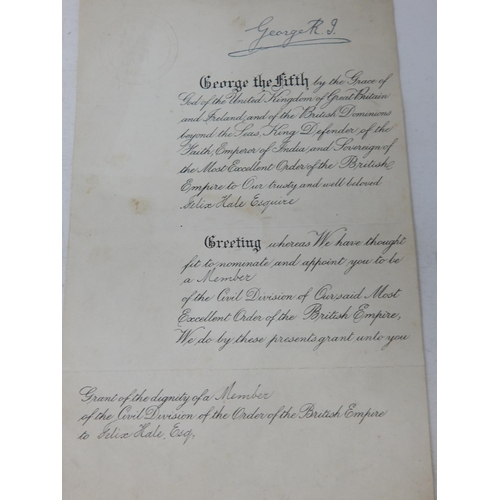 George R. I.
George the Fifth by the Grace of
God of the United Kingdom of Great Britain
and Ireland, and of the British Dominions
beyond the Seas King Defender of the
Faith, Emperor of India and Sovereign of
the Most Excellent Order of the British
Empire to Our trusty and well beloved
Felix Hale Esquire
Greeting whereas We have thought
fit to nominate and appoint you to be
a Member
of the Civil Division of Our said Most
Excellent Order of the British Empire,
We do by these presents grant unto you
Grant of the dignity of a Member
of the Civil Division of the Order of the British Empire
to Felix Hale, Esq.